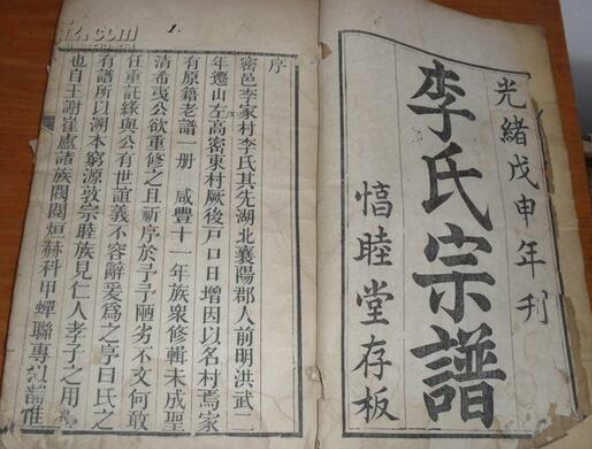 光緒戊申年刊
李氏宗譜
惇睦堂存板
序
密邑李家村李氏其先湖北襄陽郡人前明洪武二
年遷山左高密東村厥後戶口日增因以名村焉家
有原籍老譜一册 咸豐十一年族衆修輯未成聖
清希夷公欲重修之且祈序於予予陋劣不文何敢
任重託緣與公有世誼義不容辭爰為之序曰氏之
有譜所以溯本窮源敦宗睦族見仁人孝子之用
也自王謝崔盧諸族閥閱烜赫科甲蟬聯專
1.
.com